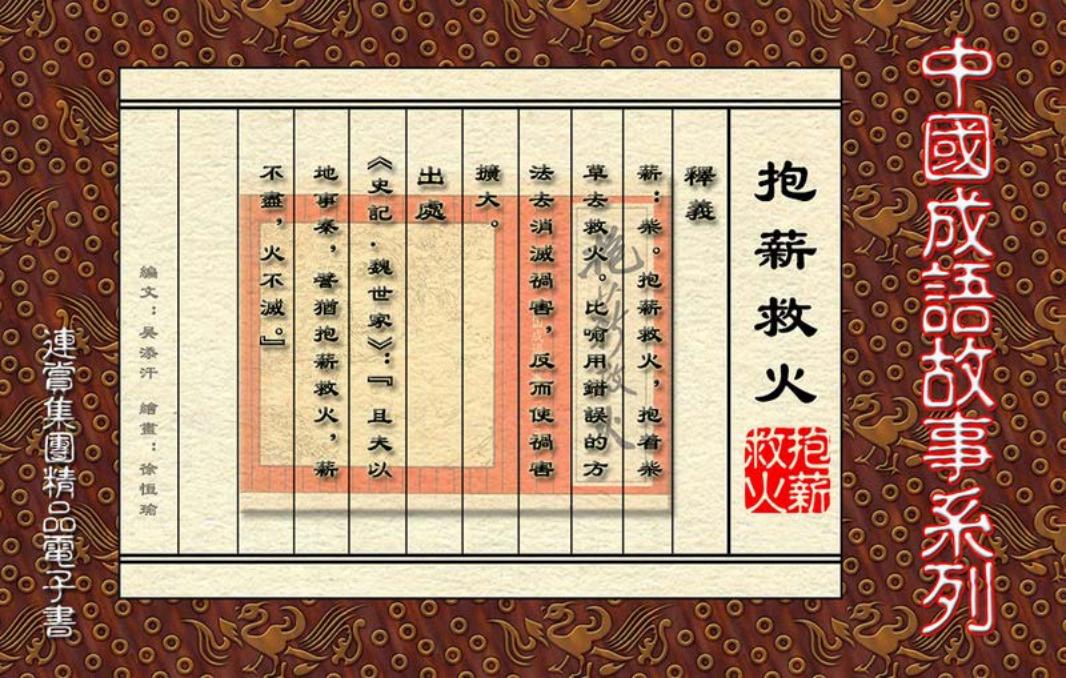 中國成語故事系列
抱薪救火
抱薪
救火
釋義
薪：柴。抱薪救火，抱着柴
草去救火。比喻用錯誤的方
法去消滅禍害，反而使禍害
擴大。
出處
《史記．魏世家》：『且夫以
地事秦，譬猶抱薪救火，薪
不盡，火不滅。』
編文：吳添汗 繪畫：徐恒瑜
連賞集團精品電子書
抱薪救火